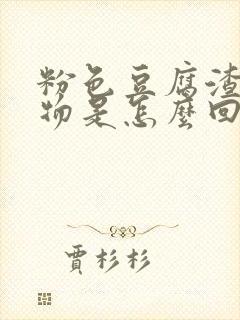 粉色豆腐渣
物是怎麼回
賈杉杉